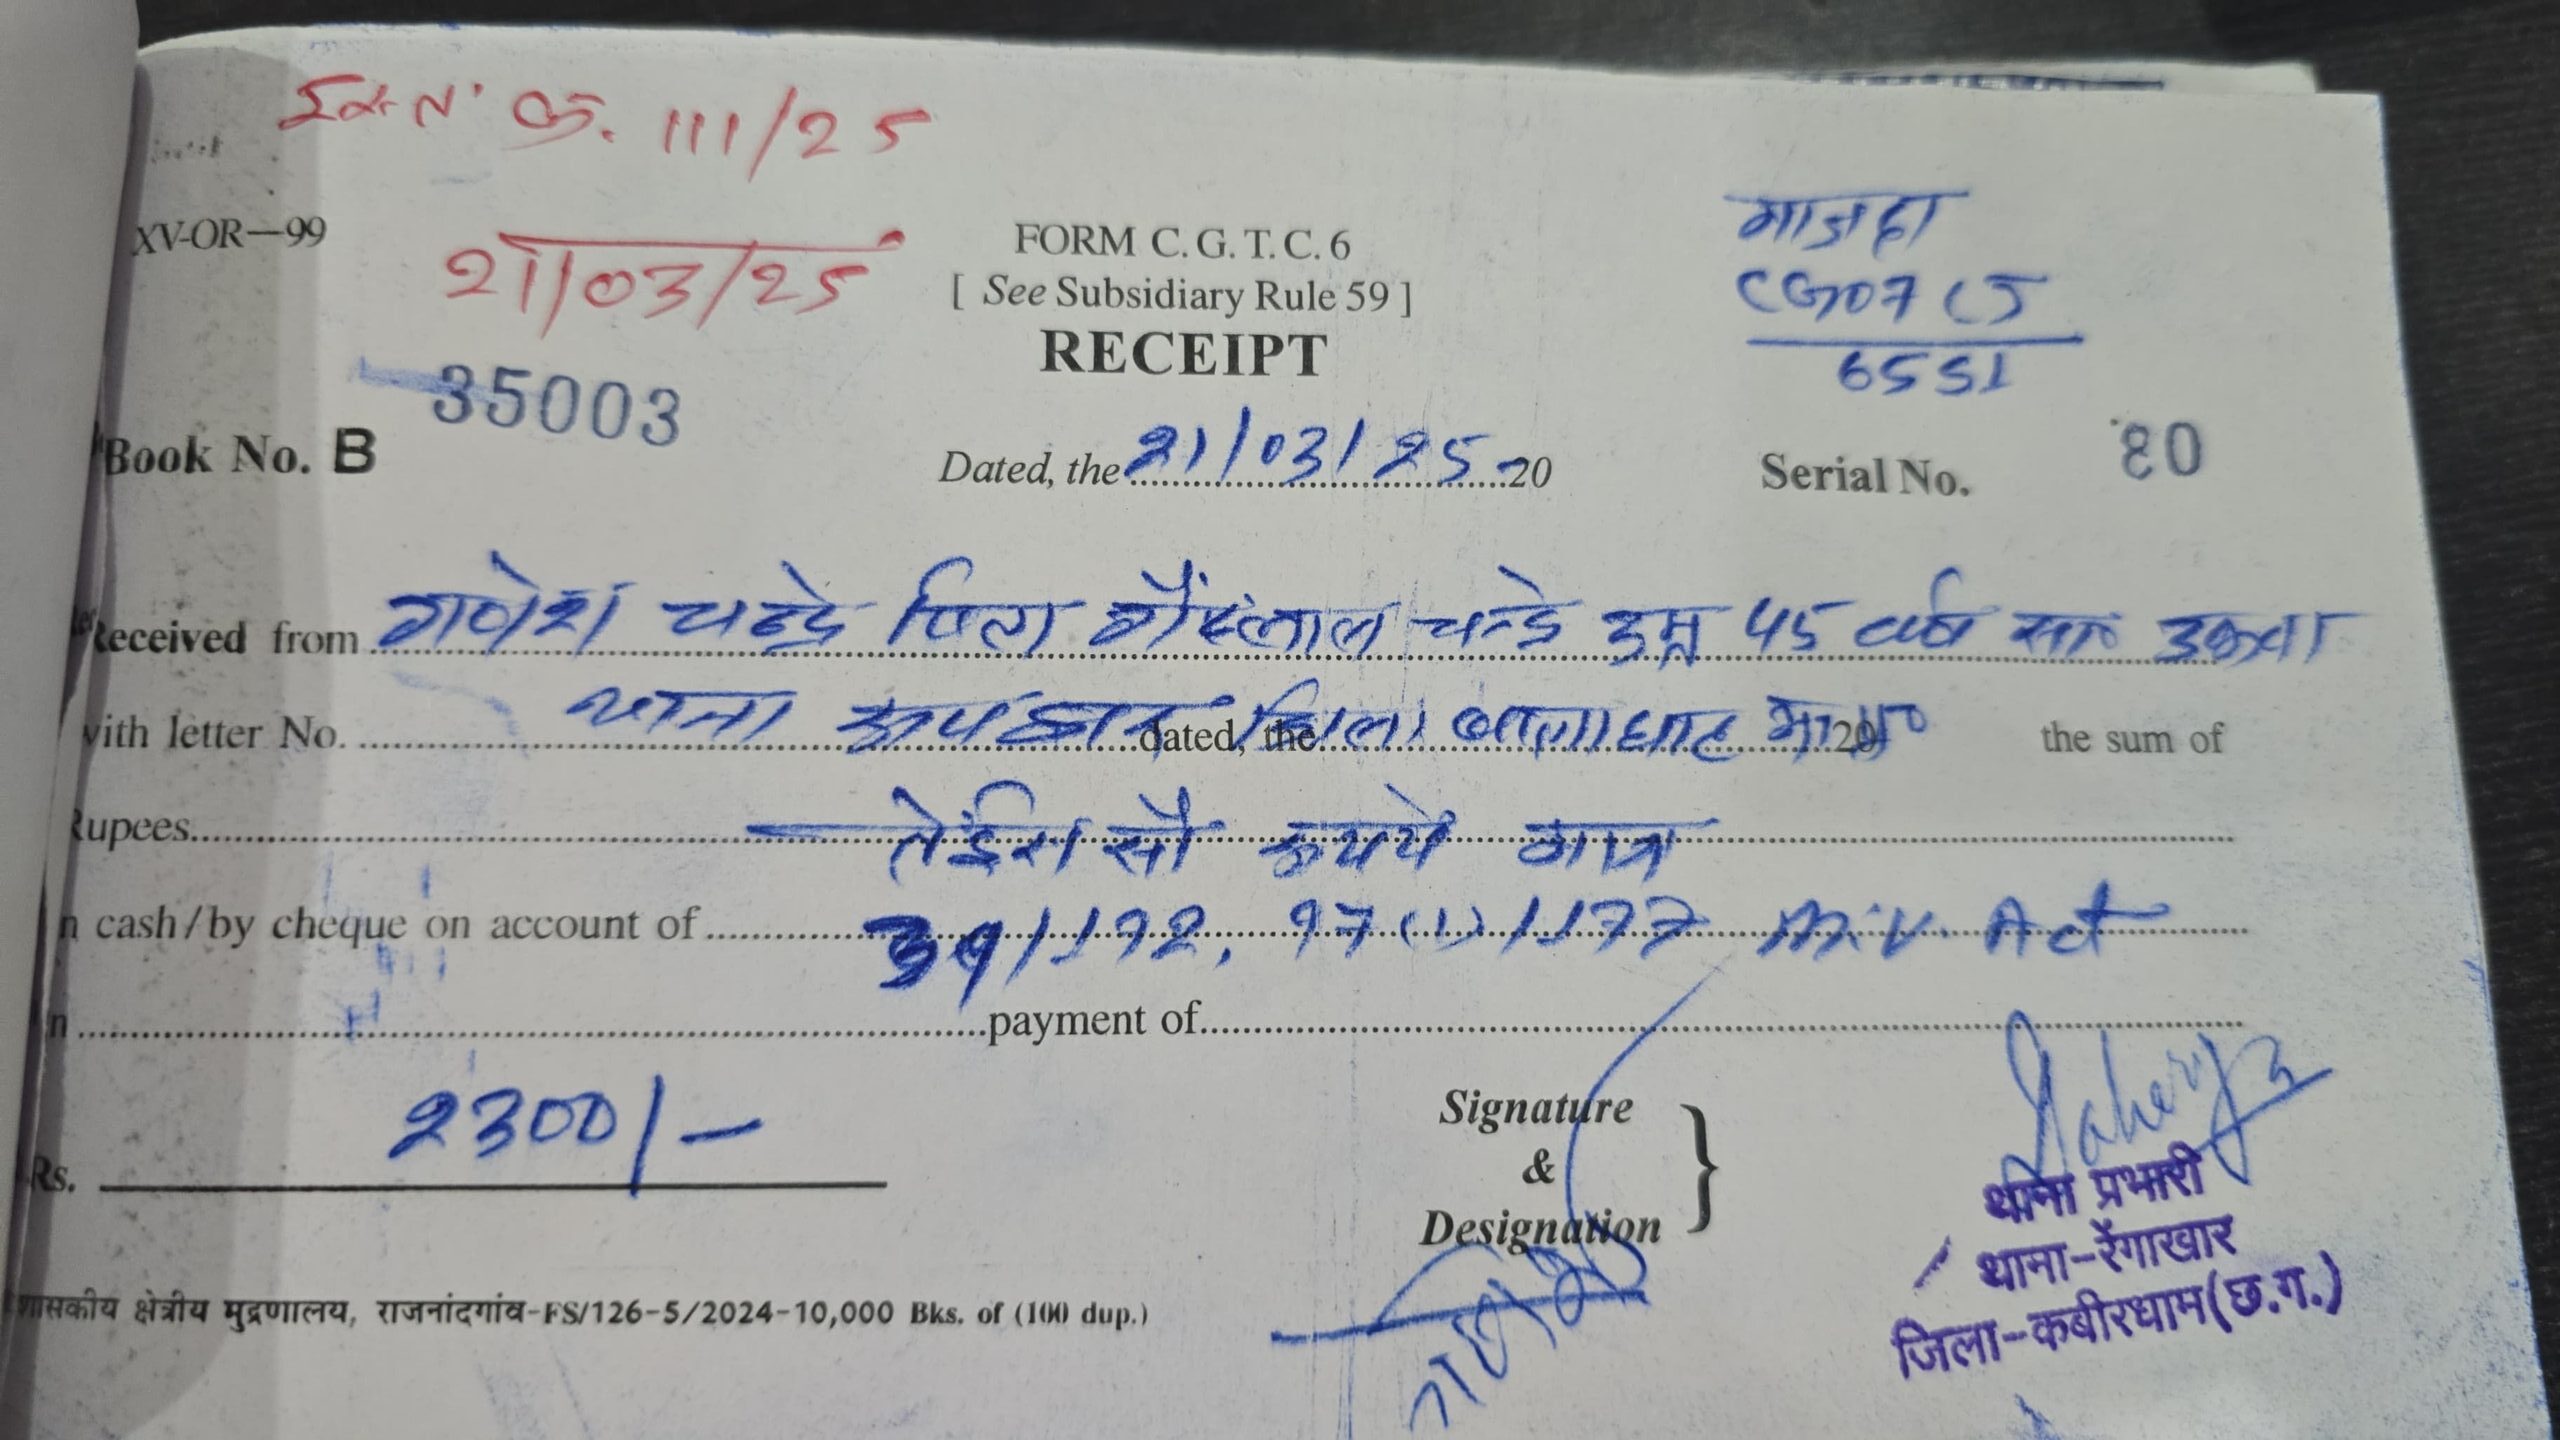 इस्त. क्र. 111/25
XV-OR—99
21/03/25
FORM C. G. T. C. 6
[ See Subsidiary Rule 59 ]
RECEIPT
माजदा
CG07 CJ
6551
35003
Book No. B
Dated, the 21/03/25 20
Serial No. 80
Received from गणेश चन्द्रे पिता लाल चन्द्रे उम्र 45 वर्ष सा० उकवा
with letter No. थाना रूपझर dated, the जिला बालाघाट म०प्र० 20 the sum of
Rupees तेईस सौ रूपये मात्र
n cash/by cheque on account of 39/192, 97(1)/177 M.V. Act
n payment of
2300/-
Rs.
Signature
&
Designation
थाना प्रभारी
थाना-रेंगाखार
जिला-कबीरधाम(छ.ग.)
गणेश
शासकीय क्षेत्रीय मुद्रणालय, राजनांदगांव-FS/126-5/2024-10,000 Bks. of (100 dup.)